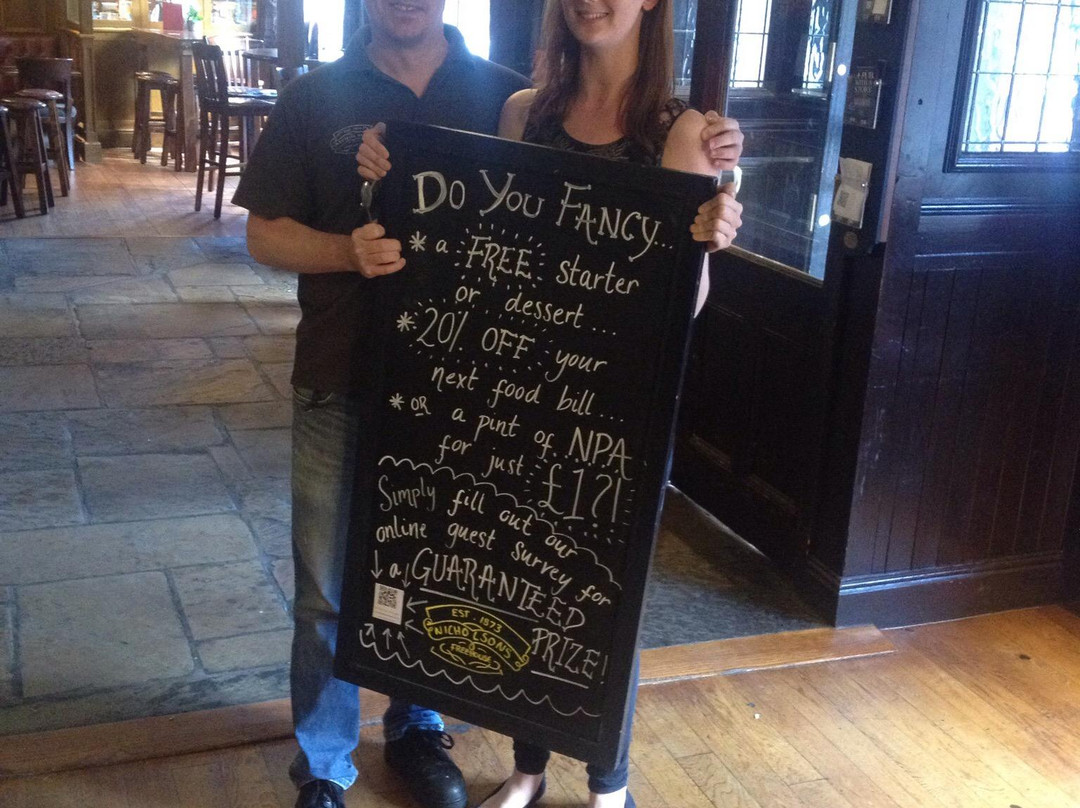 Do You FANCY...
* a FREE starter
or dessert ...
* 20% OFF your
next food bill....
* OR a pint of NPA
for just £1?!
Simply fill out our
online guest survey for
a GUARANTEED
PRIZE!
EST 1873
NICHOLSONS
FREEHOUSE